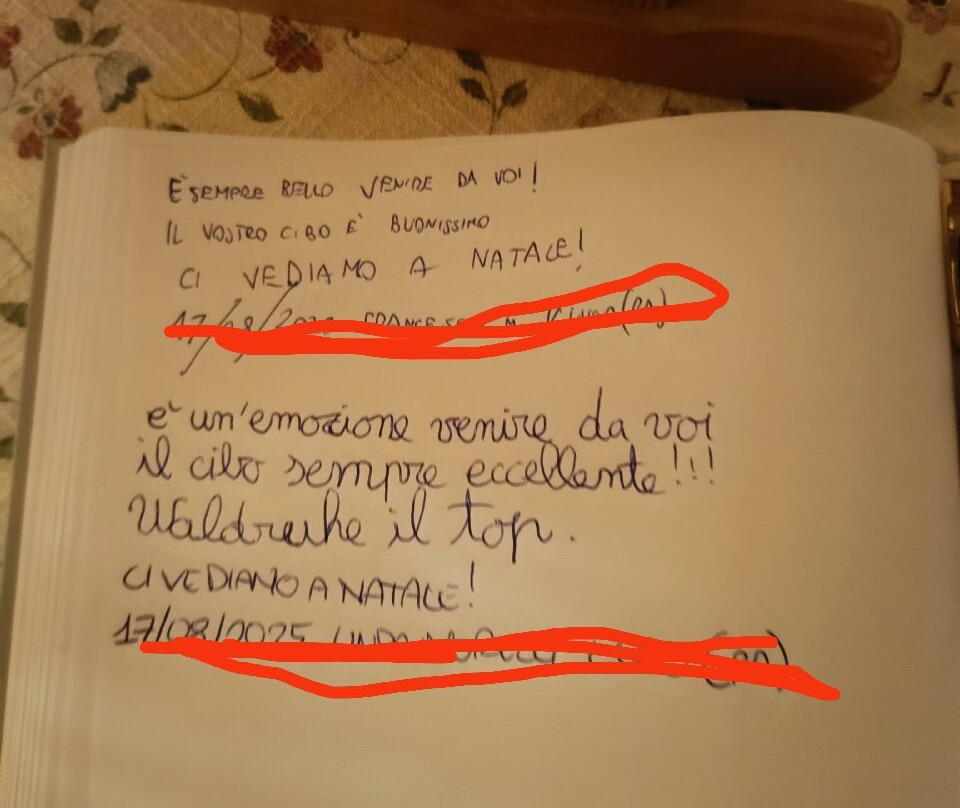 È SEMPRE BELLO VENIRE DA VOI!
IL VOSTRO CIBO È BUONISSIMO
CI VEDIAMO A NATALE!
17/08/
è un'emozione venire da voi
il cibo sempre eccellente!!!
Waldruhe il top.
CI VEDIAMO A NATALE!
17/08/2025